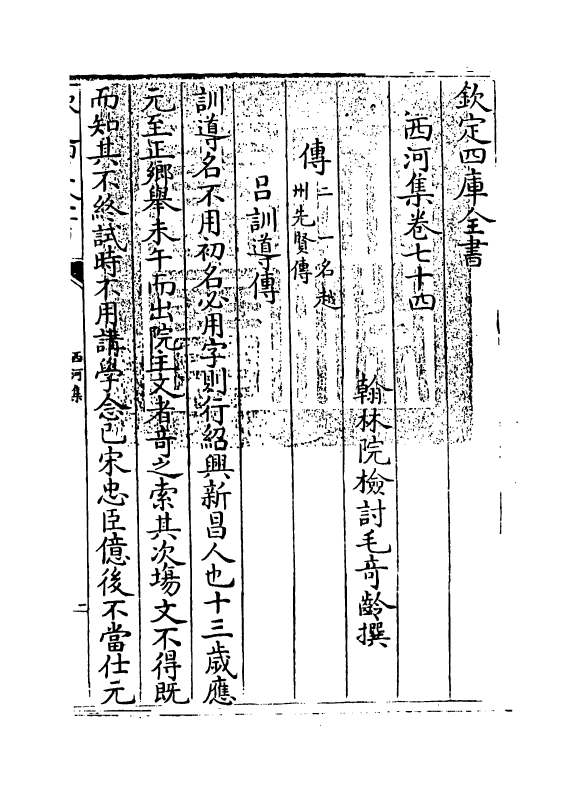 欽定四庫全書
西河集卷七十四
翰林院檢討毛奇齡撰
傳二一名越
州先賢傳
呂訓導傳
訓導名不用初名必用字則行紹興新昌人也十三歲應
元至正鄉舉未午而出院主文者竒之索其次場文不得既
而知其不終試時不用講學念已宋忠臣億後不當仕元
西河集
二